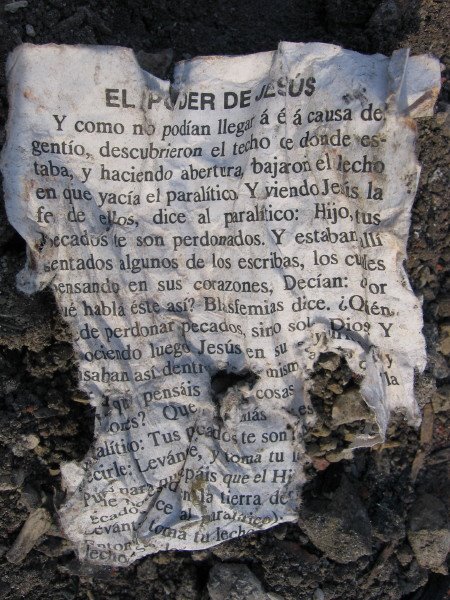 EL PODER DE JESÚS
Y como no podían llegar á é á causa de
gentío, descubrieron el techo de donde es-
taba, y haciendo abertura, bajaron el lecho
en que yacía el paralítico Y viendo Jesús la
fe de ellos, dice al paralítico: Hijo, tus
pecados te son perdonados. Y estaban allí
sentados algunos de los escribas, los cuales
pensando en sus corazones, Decían: Por
qué habla éste así? Blasfemias dice. ¿Quién
de perdonar pecados, sino solo Dios? Y
ociendo luego Jesús en su y
saban así dentr mism la
qué pensáis cosas
ores? Qué más es
alítico: Tus pecados te son
ecirle: Levánte, y toma tu l
páis que el Hi
la tierra de
ecados ice al paralítico).
Levánt toma tu lecho
Enton
lecho